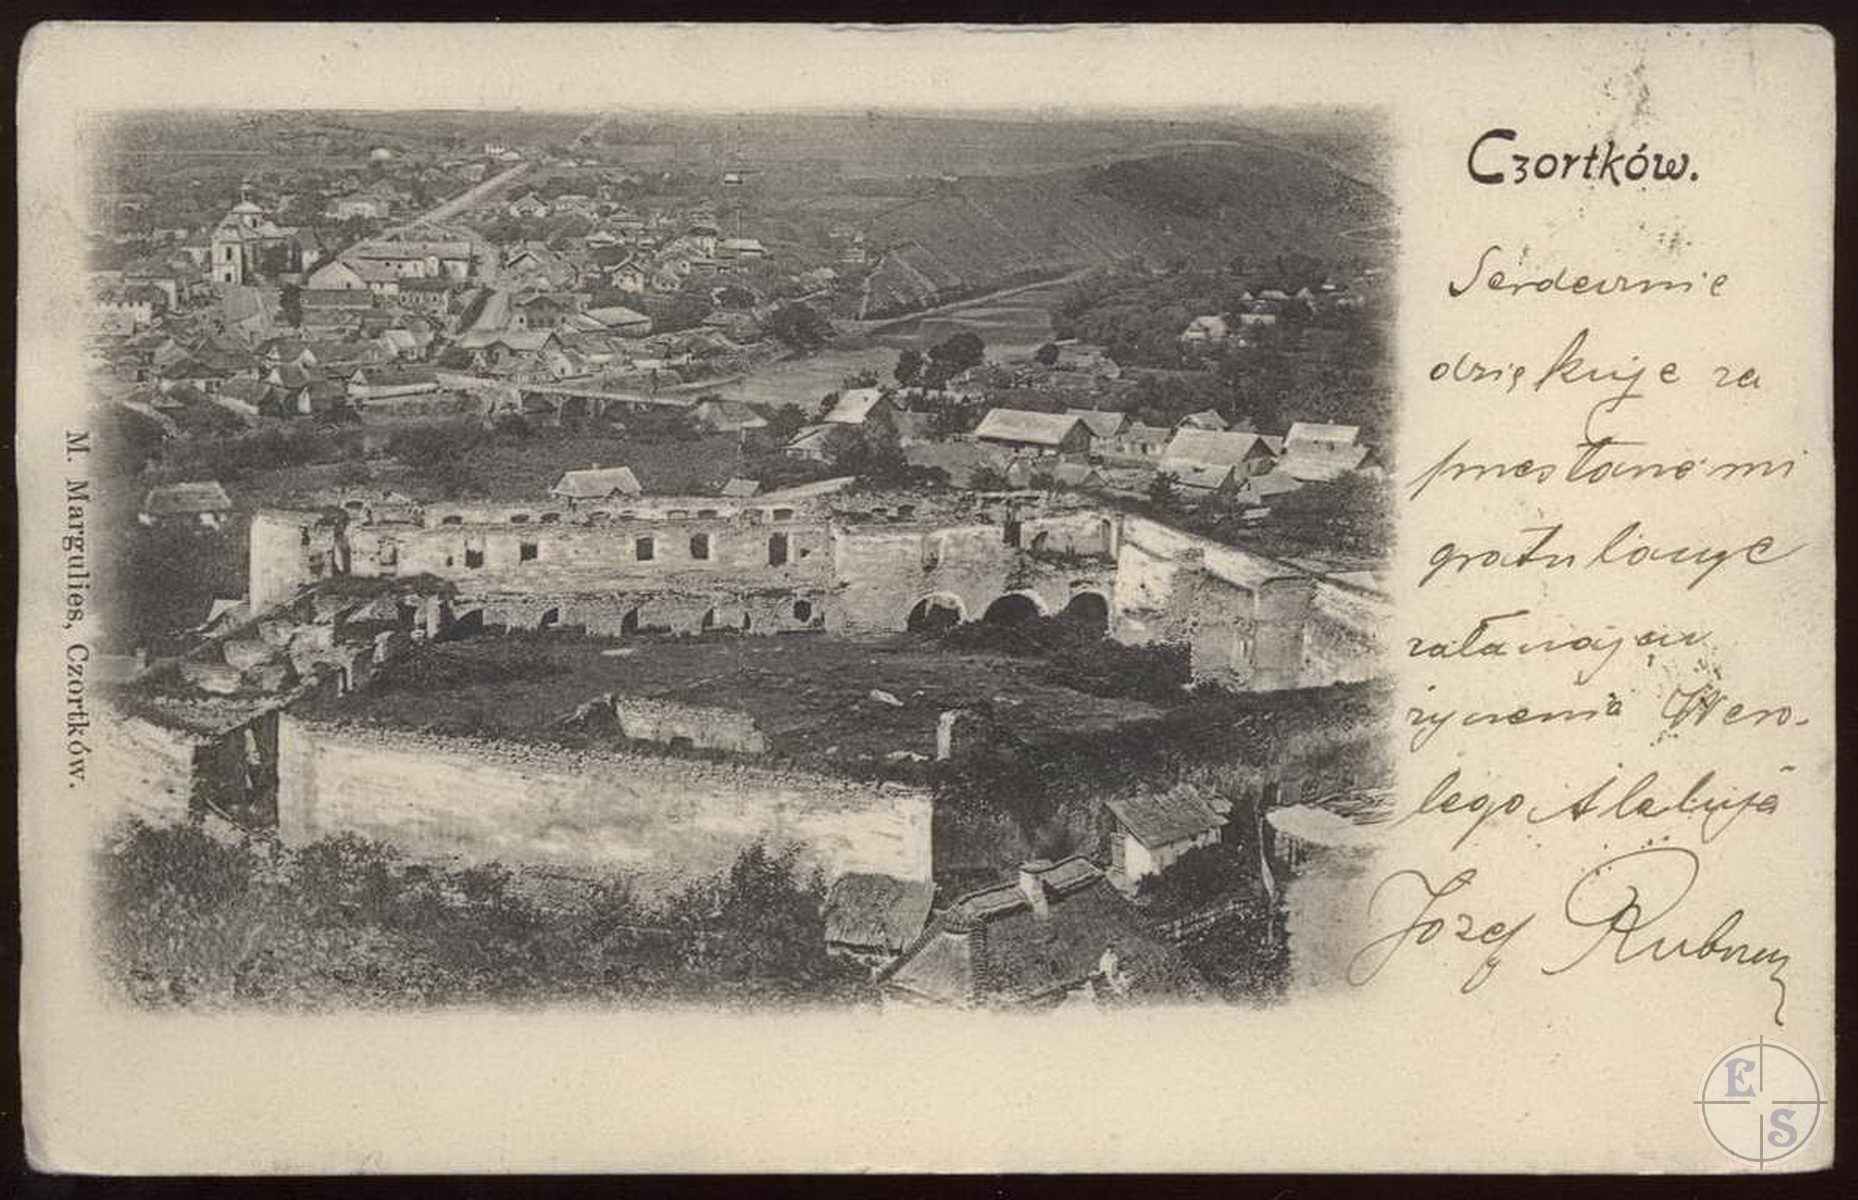 Czortków.
Serdecznie
dziękuję za
przesłane mi
gratulacye
załączając
życzenia Weso-
łego Alleluja
Józef
M. Margulies, Czortków.
E
S